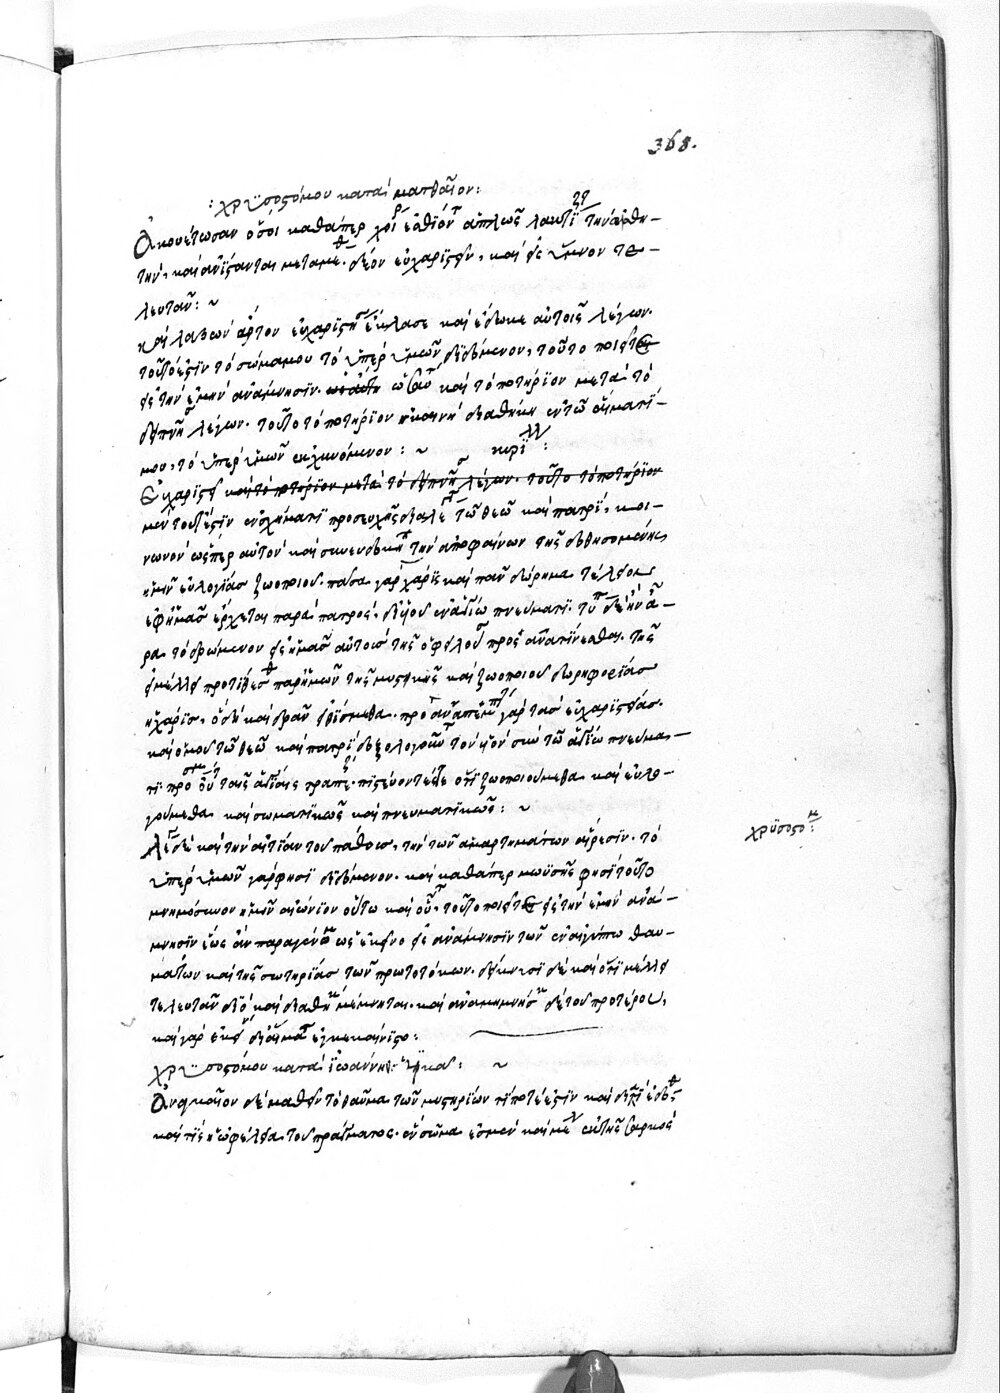 368.
: χρυσοστόμου κατὰ ματθαῖον :
Ἀκουέτωσαν ὅσοι καθάπερ χοῖροι ἐσθίοντες ἁπλῶς
την, καὶ ἀνίστανται μετὰ μέθης. δέον εὐχαριστεῖν, καὶ εἰς ὕμνον τε–
λευτᾶν : ~
καὶ λαβὼν ἄρτον εὐχαριστήσας ἔκλασε καὶ ἔδωκε αὐτοῖς λέγων.
τοῦτό ἐστιν τὸ σῶμα μου τὸ ὑπὲρ ὑμῶν διδόμενον, τοῦτο ποιεῖτε
εἰς τὴν ἐμὴν ἀνάμνησιν. ὡσαύτως καὶ τὸ ποτήριον μετὰ τὸ
δειπνῆσαι λέγων. τοῦτο τὸ ποτήριον ἡ καινὴ διαθήκη ἐν τῷ αἵματί
μου, τὸ ὑπὲρ ὑμῶν ἐκχυνόμενον : ~ κυρίλλου :
Εὐχαριστεῖ καὶ τὸ ποτήριον μετὰ τὸ δειπνῆσαι λέγων. τοῦτο τὸ ποτήριον
μὲν τουτέστιν ἐν σχήματι προσευχῆς διαλέγεται τῷ θεῷ καὶ πατρί, κοι–
νωνὸν ὥσπερ αὐτὸν καὶ συνευδοκητὴν ἀποφαίνων τῆς δοθησομένης
ἡμῖν εὐλογίας ζωοποιοῦ. πᾶσα γὰρ χάρις καὶ πᾶν δώρημα τέλειον
ἐφ' ἡμᾶς ἔρχεται παρὰ πατρὸς, δι' υἱοῦ ἐν ἁγίῳ πνεύματι. τύπος δὲ ἦν ἄ–
ρα τὸ δρώμενον εἰς ἡμᾶς αὐτοὺς τῆς ὀφειλούσης προανατείνεσθαι. τῆς
εἰ μέλλει προτίθεσθαι παρ' ἡμῶν τῆς μυστικῆς καὶ ζωοποιοῦ δωροφορίας
ἡ χάρις, ὃ δὴ καὶ δρᾶν εἰθίσμεθα. προαναπέμποντες γὰρ τὰς εὐχαριστίας.
καὶ ὁμοῦ τῷ θεῷ καὶ πατρὶ δοξολογοῦντες τὸν υἱὸν σὺν τῷ ἁγίῳ πνεύμα–
τι πρόσιμεν οὕτω ταῖς ἁγίαις τραπέζαις. πιστεύοντες ὅτι ζωοποιούμεθα καὶ εὐλο–
γούμεθα καὶ σωματικῶς καὶ πνευματικῶς : ~
λέγει δὲ καὶ τὴν αἰτίαν τοῦ πάθους, τὴν τῶν ἁμαρτημάτων αἵρεσιν. τὸ
ὑπὲρ ὑμῶν γάρ φησι διδόμενον. καὶ καθάπερ μωϋσῆς φησὶ τοῦτο
μνημόσυνον ἡμῖν αἰώνιον οὕτω καὶ οὗτος, τοῦτο ποιεῖτε εἰς τὴν ἐμὴν ἀνά–
μνησιν ἕως ἂν παραγένωμαι ὡς ἐκεῖνο εἰς ἀνάμνησιν τῶν ἐν αἰγύπτω θαυ–
μάτων καὶ τῆς σωτηρίας τῶν πρωτοτόκων. δείκνυσι δὲ καὶ ὅτι μέλλει
τελευτᾶν διὸ καὶ διαθήκης μέμνηται. καὶ ἀναμιμνήσκει δὲ τοῦ προτέρου,
καὶ γὰρ ἐκείνη δι' αἵματος ἐγκεκαίνιστο :
χρυσοστόμου κατὰ ἰωάννην :
Ἀναγκαῖον δὲ μαθεῖν τὸ θαῦμα τῶν μυστηρίων τί ποτέ ἐστιν καὶ διατί ἐδόθη
καὶ τίς ἡ ὠφέλεια τοῦ πράγματος. ἓν σῶμα ἐσμὲν καὶ μέλη ἐκ τῆς σαρκὸς
χρυσοστόμου :